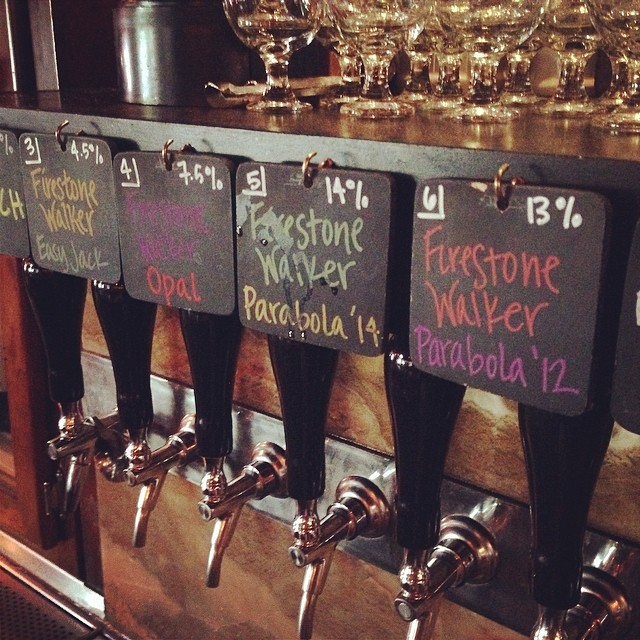 %
CH
3 4.5%
Firestone
Walker
Easy Jack
4 7.5%
Firestone
Walker
Opal
5 14%
Firestone
Walker
Parabola '14
6 13%
Firestone
Walker
Parabola '12